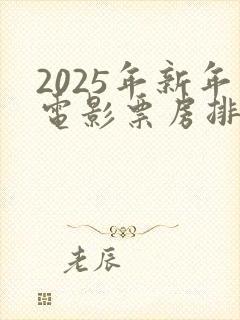 2025年新年
电影票房排
老辰